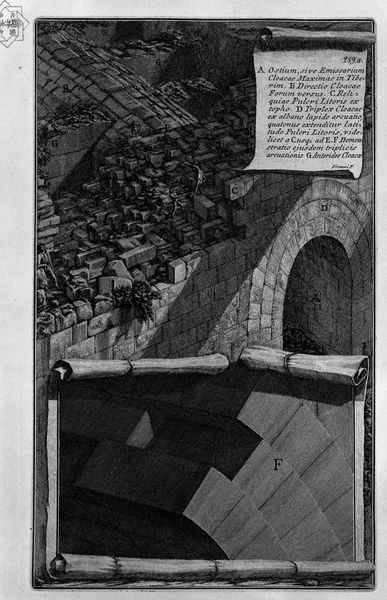 259.a
A. Ostium, sive Emissarium
Cloacae Maximae in Tibe-
rim. B. Directio Cloacae
Forum versus. C. Reli-
quiae Pulcri Litoris ex
topho. D. Triplex Cloacae
ex albano lapide arcuatio,
quatenus extenditur lati-
tudo Pulcri Litoris, vide-
licet a C usq. ad E. F. Demon
stratio ejusdem triplicis
arcuationis. G. Anterides Cloacae
Piranesi F.
G
C
D
A
F